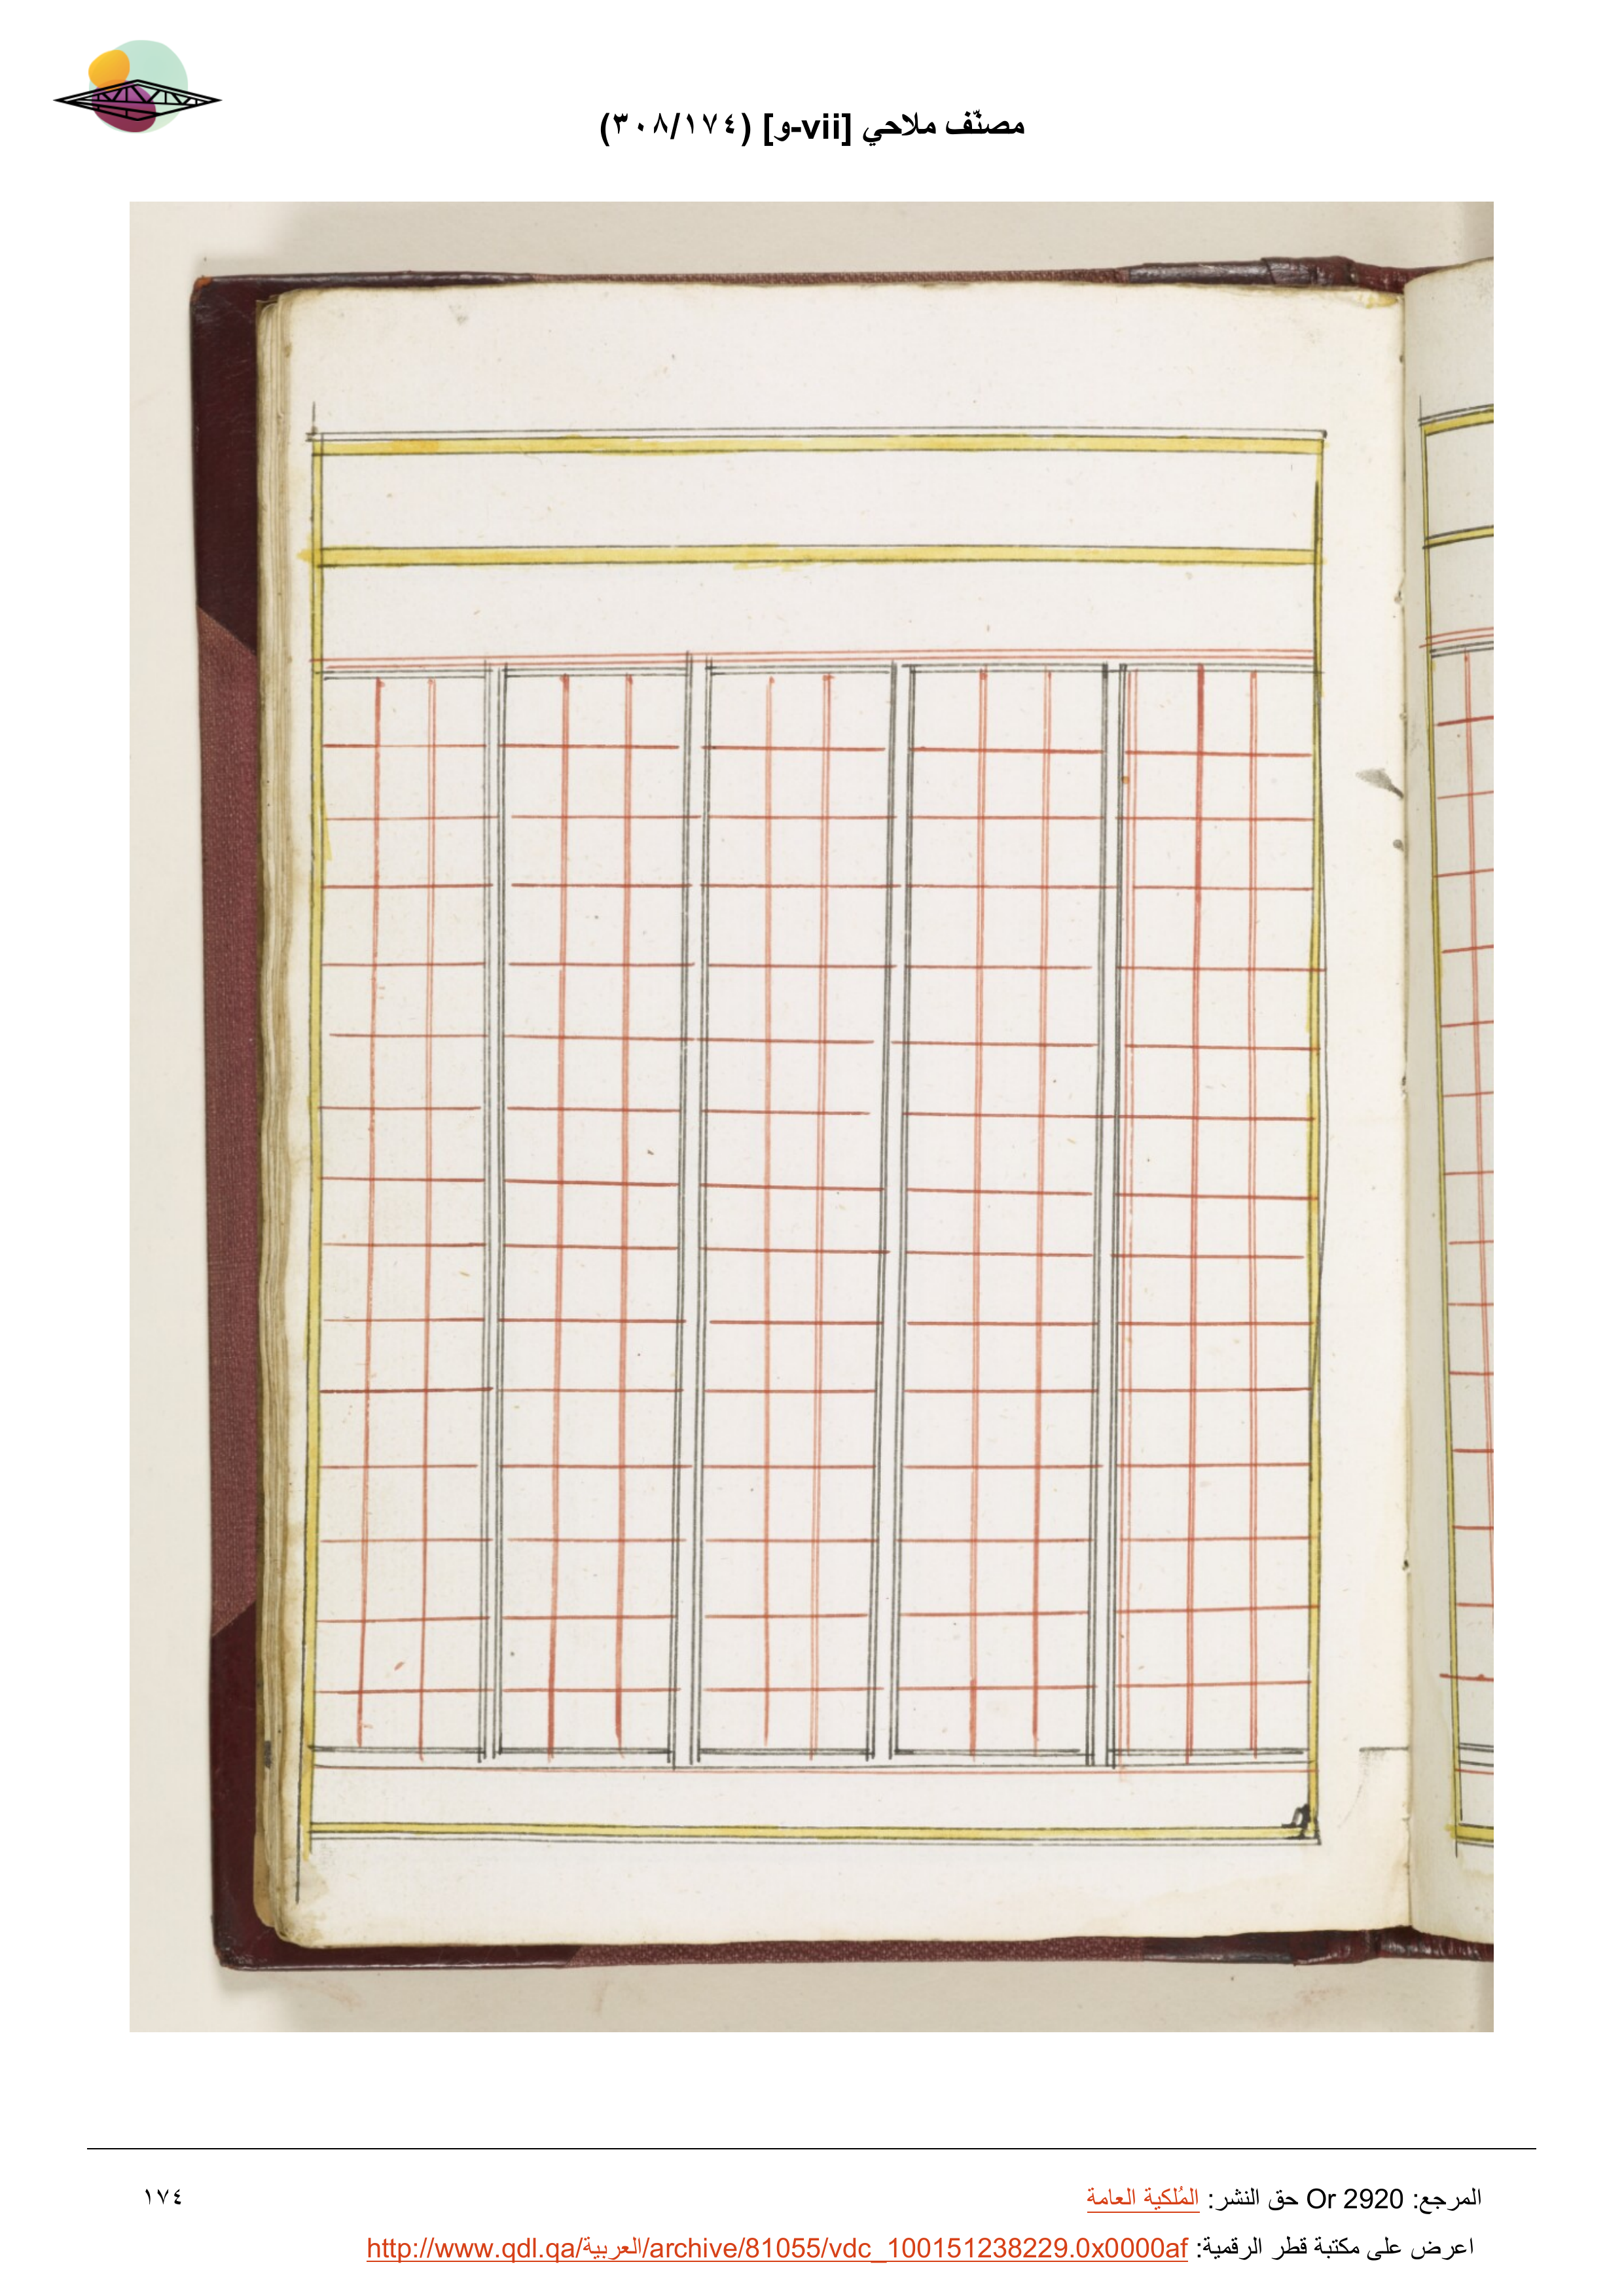 مصنّف ملاحي [vii-و] (٣٠٨/١٧٤)
المرجع: Or 2920 حق النشر: المُلكية العامة
١٧٤
اعرض على مكتبة قطر الرقمية: http://www.qdl.qa/العربية/archive/81055/vdc_100151238229.0x0000af